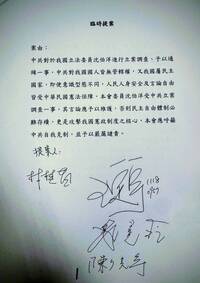 臨時提案
案由：
中共對於我國立法委員沈伯洋進行立案調查、予以通
緝一事，中共對於我國國人皆無管轄權，又我國屬民主
國家，即使意識型態不同，人民人身安全及言論自由
皆受中華民國憲法保障，本會委員沈伯洋受中共立案
調查一事，其言論應予以維護，否則民主自由體制必
難存續，更是攻擊我國憲政制度之核心，本會應呼籲
中共自我克制，並予以嚴厲譴責。
提案人：